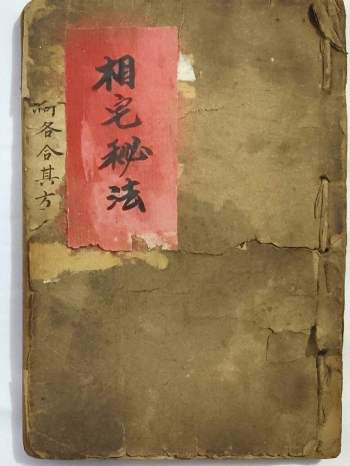 相宅秘法
各合其方